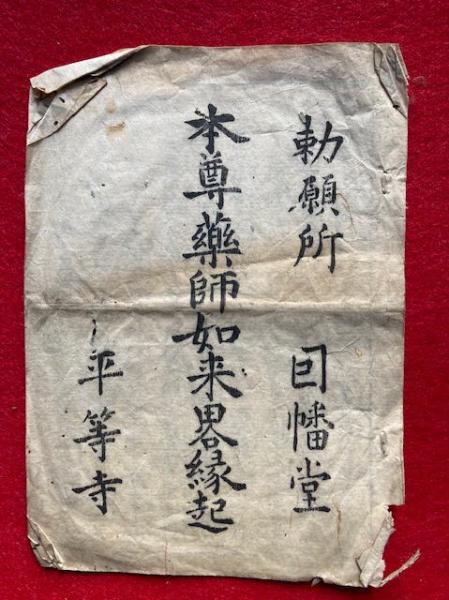 勅願所　因幡堂
本尊藥師如来畧縁起
平等寺